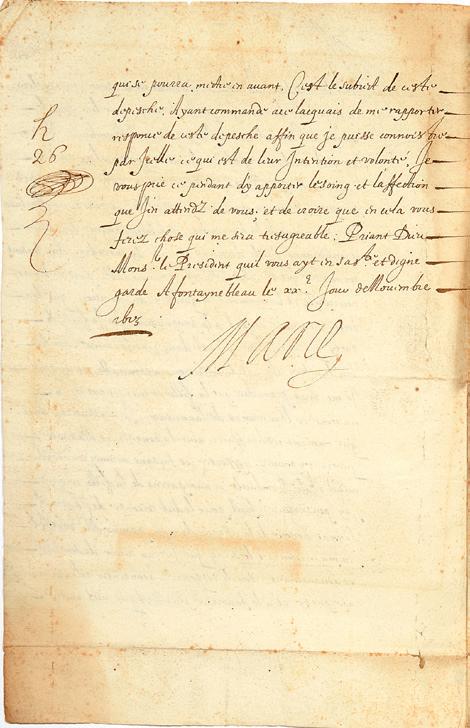 qui se pourra mectre en avant. C'est le subiect de ceste
depesche. Ayant commandé a ce lacquais de me rapporter
responce de ceste depesche affin que je puisse connoistre
par Icelle ce qui est de leur Intention et volonté, Je
vous prie ce pendant d'y apporter le soing et l'affection
que J'en attendz de vous, et de croire que en cela vous
ferez chose qui me sera tresagreable. Priant Dieu
Monsr le President quil vous ayt en sa ste et digne
garde A fontaynebleau le xxe Jour de Novembre
Marie
h
26